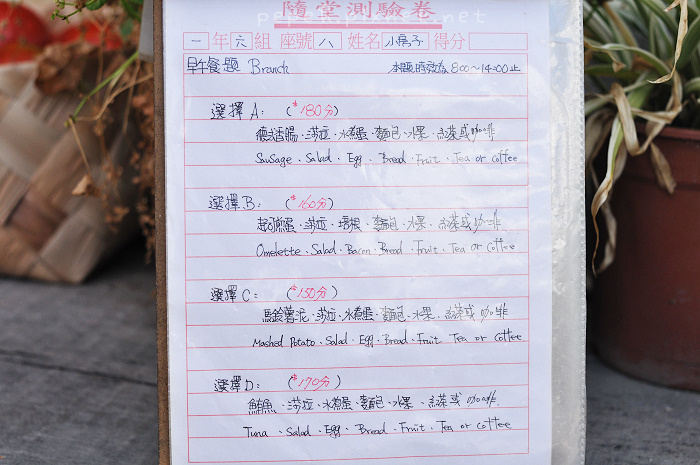 隨堂測驗卷
一年六組 座號八 姓名小房子 得分
早午餐題 Branch 本題時效為 8:00~14:00止
選擇A: (*180分)
德式香腸、沙拉、水煮蛋、麵包、水果、紅茶或咖啡
Sausage、Salad、Egg、Bread、Fruit、Tea or Coffee
選擇B: (*160分)
起司煎蛋、沙拉、培根、麵包、水果、紅茶或咖啡
Omelette、Salad、Bacon、Bread、Fruit、Tea or Coffee
選擇C: (*150分)
馬鈴薯泥、沙拉、水煮蛋、麵包、水果、紅茶或咖啡
Mashed Potato、Salad、Egg、Bread、Fruit、Tea or Coffee
選擇D: (*170分)
鮪魚、沙拉、水煮蛋、麵包、水果、紅茶或咖啡
Tuna、Salad、Egg、Bread、Fruit、Tea or Coffee